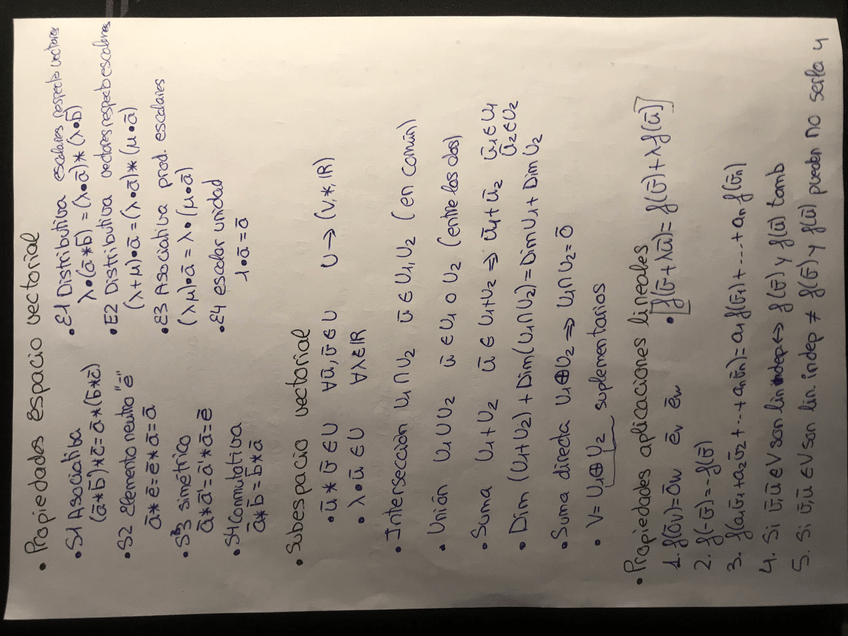 • Propiedades espacio vectorial
• S1 Asociativa
(ā*b̄)*c̄=ā*(b̄*c̄)
• S2 Elemento neutro "ē"
ā*ē=ē*ā=ā
• S3 simétrico
ā*ā'=ā'*ā=ē
• S4 Conmutativa
ā*b̄=b̄*ā
• E1 Distributiva escalares respecto vectores
λ•(ā*b̄)=(λ•ā)*(λ•b̄)
• E2 Distributiva vectores respect escalares
(λ+μ)•ā=(λ•ā)*(μ•ā)
• E3 Asociativa prod. escalares
(λμ)•ā=λ•(μ•ā)
• E4 escalar unidad
1•ā=ā
• Subespacio vectorial
• ū*v̄∈U ∀ū,v̄∈U U→(V,*,ℝ)
• λ•ū∈U ∀λ∈ℝ
• Intersección U₁∩U₂ ū∈U₁,U₂ (en común)
• Unión U₁∪U₂ ū∈U₁ o U₂ (entre las dos)
• Suma U₁+U₂ ū∈U₁+U₂ ⇒ ū₁+ū₂ ū₁∈U₁
ū₂∈U₂
• Dim(U₁+U₂)+Dim(U₁∩U₂)=Dim U₁+Dim U₂
• Suma directa U₁⊕U₂ ⇒ U₁∩U₂=ō
• V=U₁⊕U₂ suplementarios
• Propiedades aplicaciones lineales
1. f(ōv)=ōw ēv ēw • f(v̄+λū)=f(v̄)+λf(ū)
2. f(-v̄)=-f(v̄)
3. f(a₁v̄₁+a₂v̄₂+...+anv̄n)=a₁f(v̄₁)+...+anf(v̄n)
4. Si v̄,ū∈V son lin indep ↔ f(v̄) y f(ū) tamb
5. Si v̄,ū∈V son lin. indep ≠ f(v̄) y f(ū) pueden no serlo